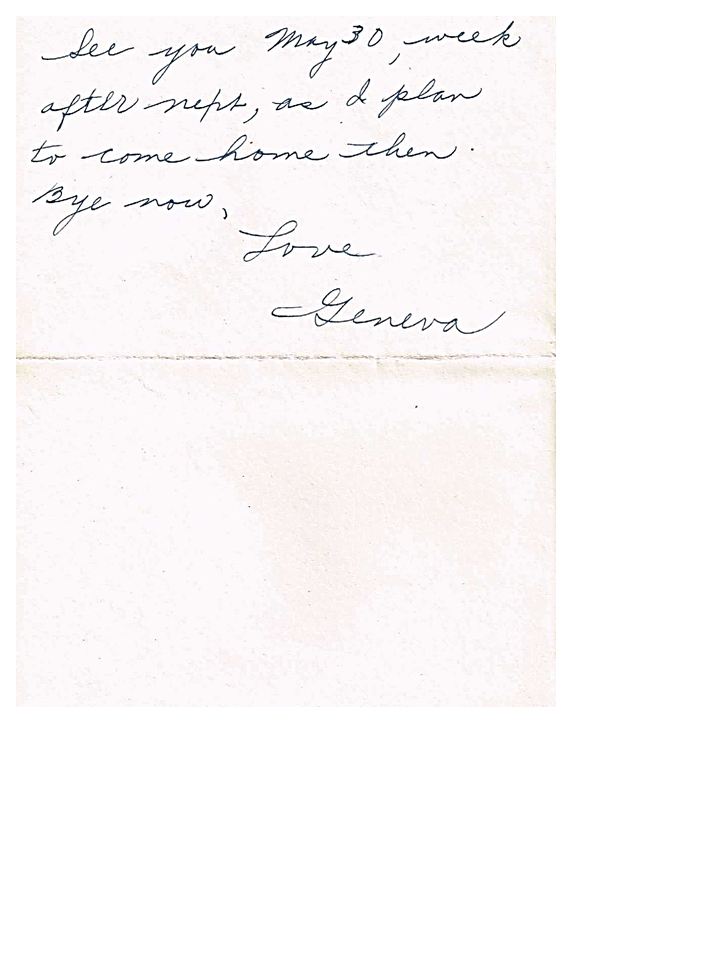 See you May 30, week
after next, as I plan
to come home then.
Bye now,
Love
Geneva